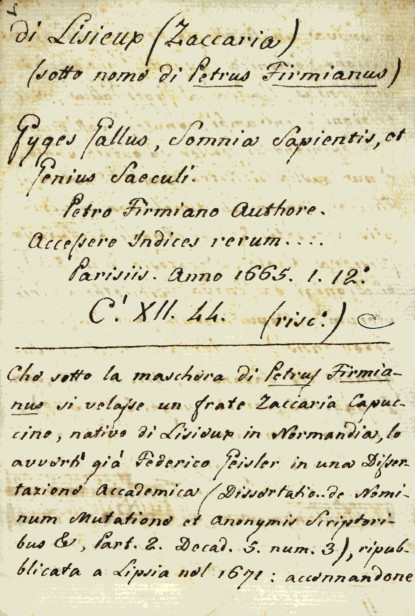 di Lisieux (Zaccaria)
(sotto nome di Petrus Firmianus)
Gyges Gallus, Somnia Sapientis, et
Genius Saeculi.
Petro Firmiano Authore.
Accessere Indices rerum....
Parisiis. Anno 1665. 1. 12.º
C.' XII. 44. (risc.º)
Che sotto la maschera di Petrus Firmia-
nus si velasse un frate Zaccaria Capuc-
cino, nativo di Lisieux in Normandia, lo
avvertì già Federico Geisler in una Disser-
tazione Accademica (Dissertatio.. de Nomi-
num Mutatione et Anonymis Scriptori-
bus &, Part. 2. Decad. 5. num. 3), ripub-
blicata a Lipsia nel 1671: accennandone